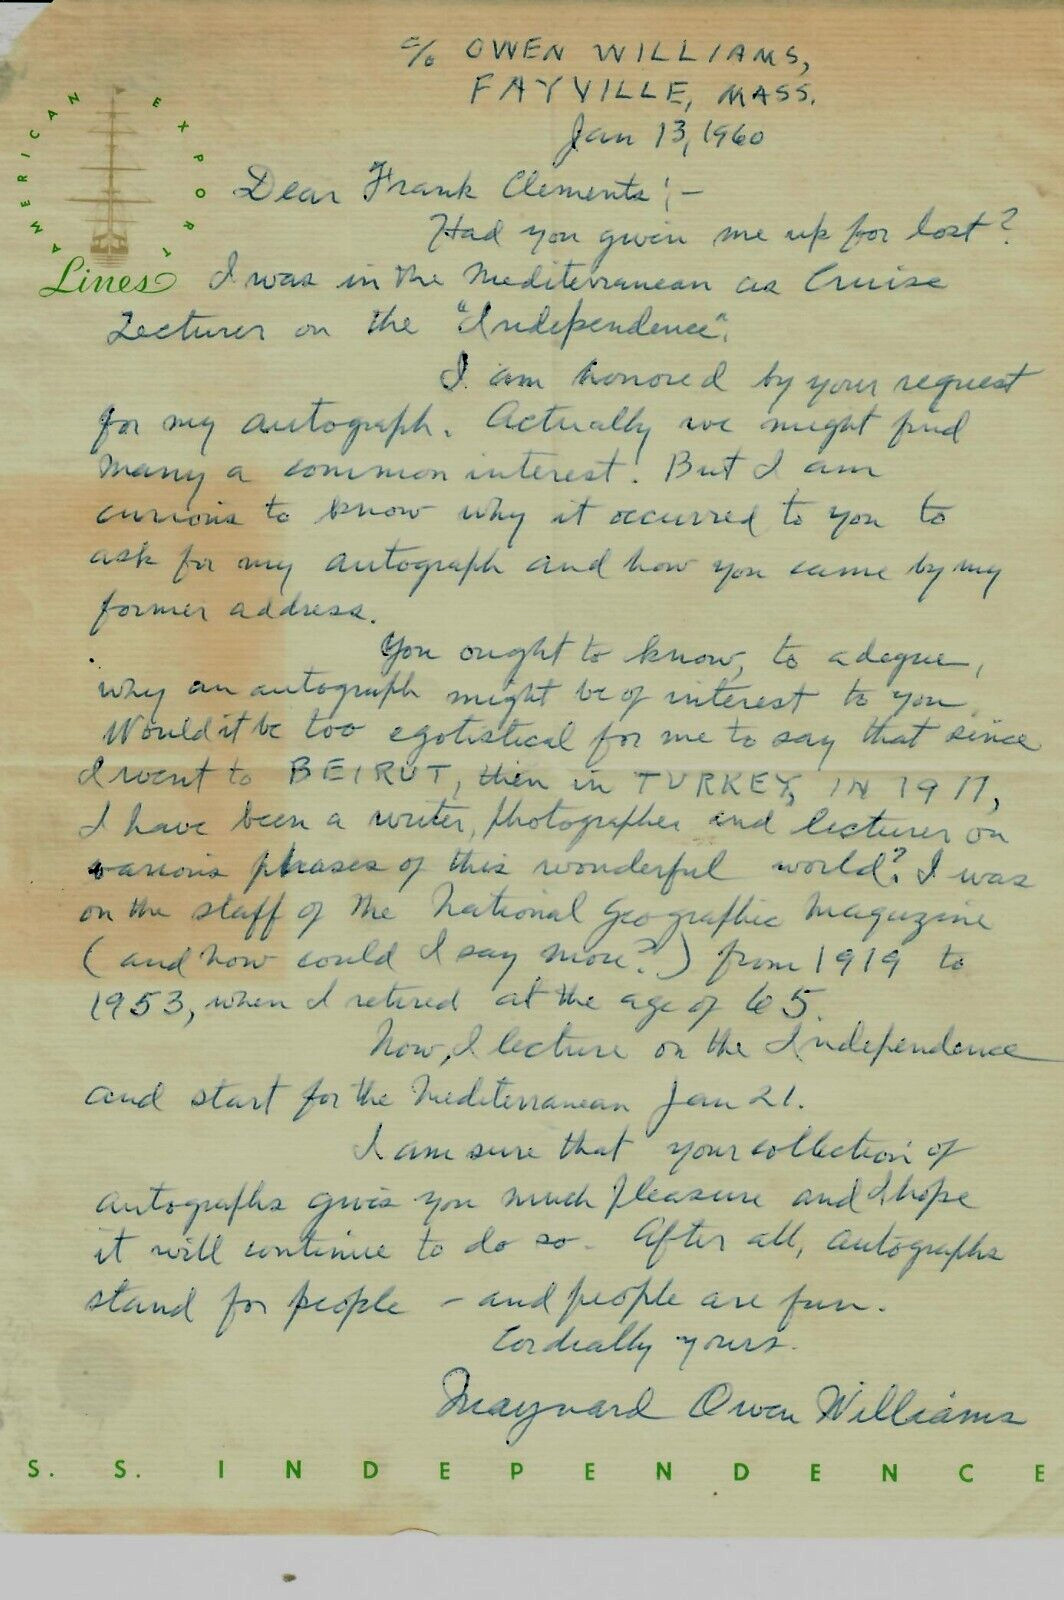 c/o OWEN WILLIAMS,
FAYVILLE, MASS.
Jan 13, 1960
AMERICAN EXPORT
Lines
Dear Frank Clements:-
Had you given me up for lost?
I was in the Mediterranean as Cruise
Lecturer on the "Independence".
I am honored by your request
for my autograph. Actually we might find
many a common interest. But I am
curious to know why it occurred to you to
ask for my autograph and how you came by my
former address.
You ought to know, to a degree,
why an autograph might be of interest to you.
Would it be too egotistical for me to say that since
I went to BEIRUT, then in TURKEY, IN 1911,
I have been a writer, photographer and lecturer on
various phases of this wonderful world? I was
on the staff of the National Geographic Magazine
(and how could I say more?) from 1919 to
1953, when I retired at the age of 65.
Now, I lecture on the Independence
and start for the Mediterranean Jan 21.
I am sure that your collection of
autographs gives you much pleasure and I hope
it will continue to do so. After all, autographs
stand for people - and people are fun.
Cordially yours.
Maynard Owen Williams
S. S. INDEPENDENCE